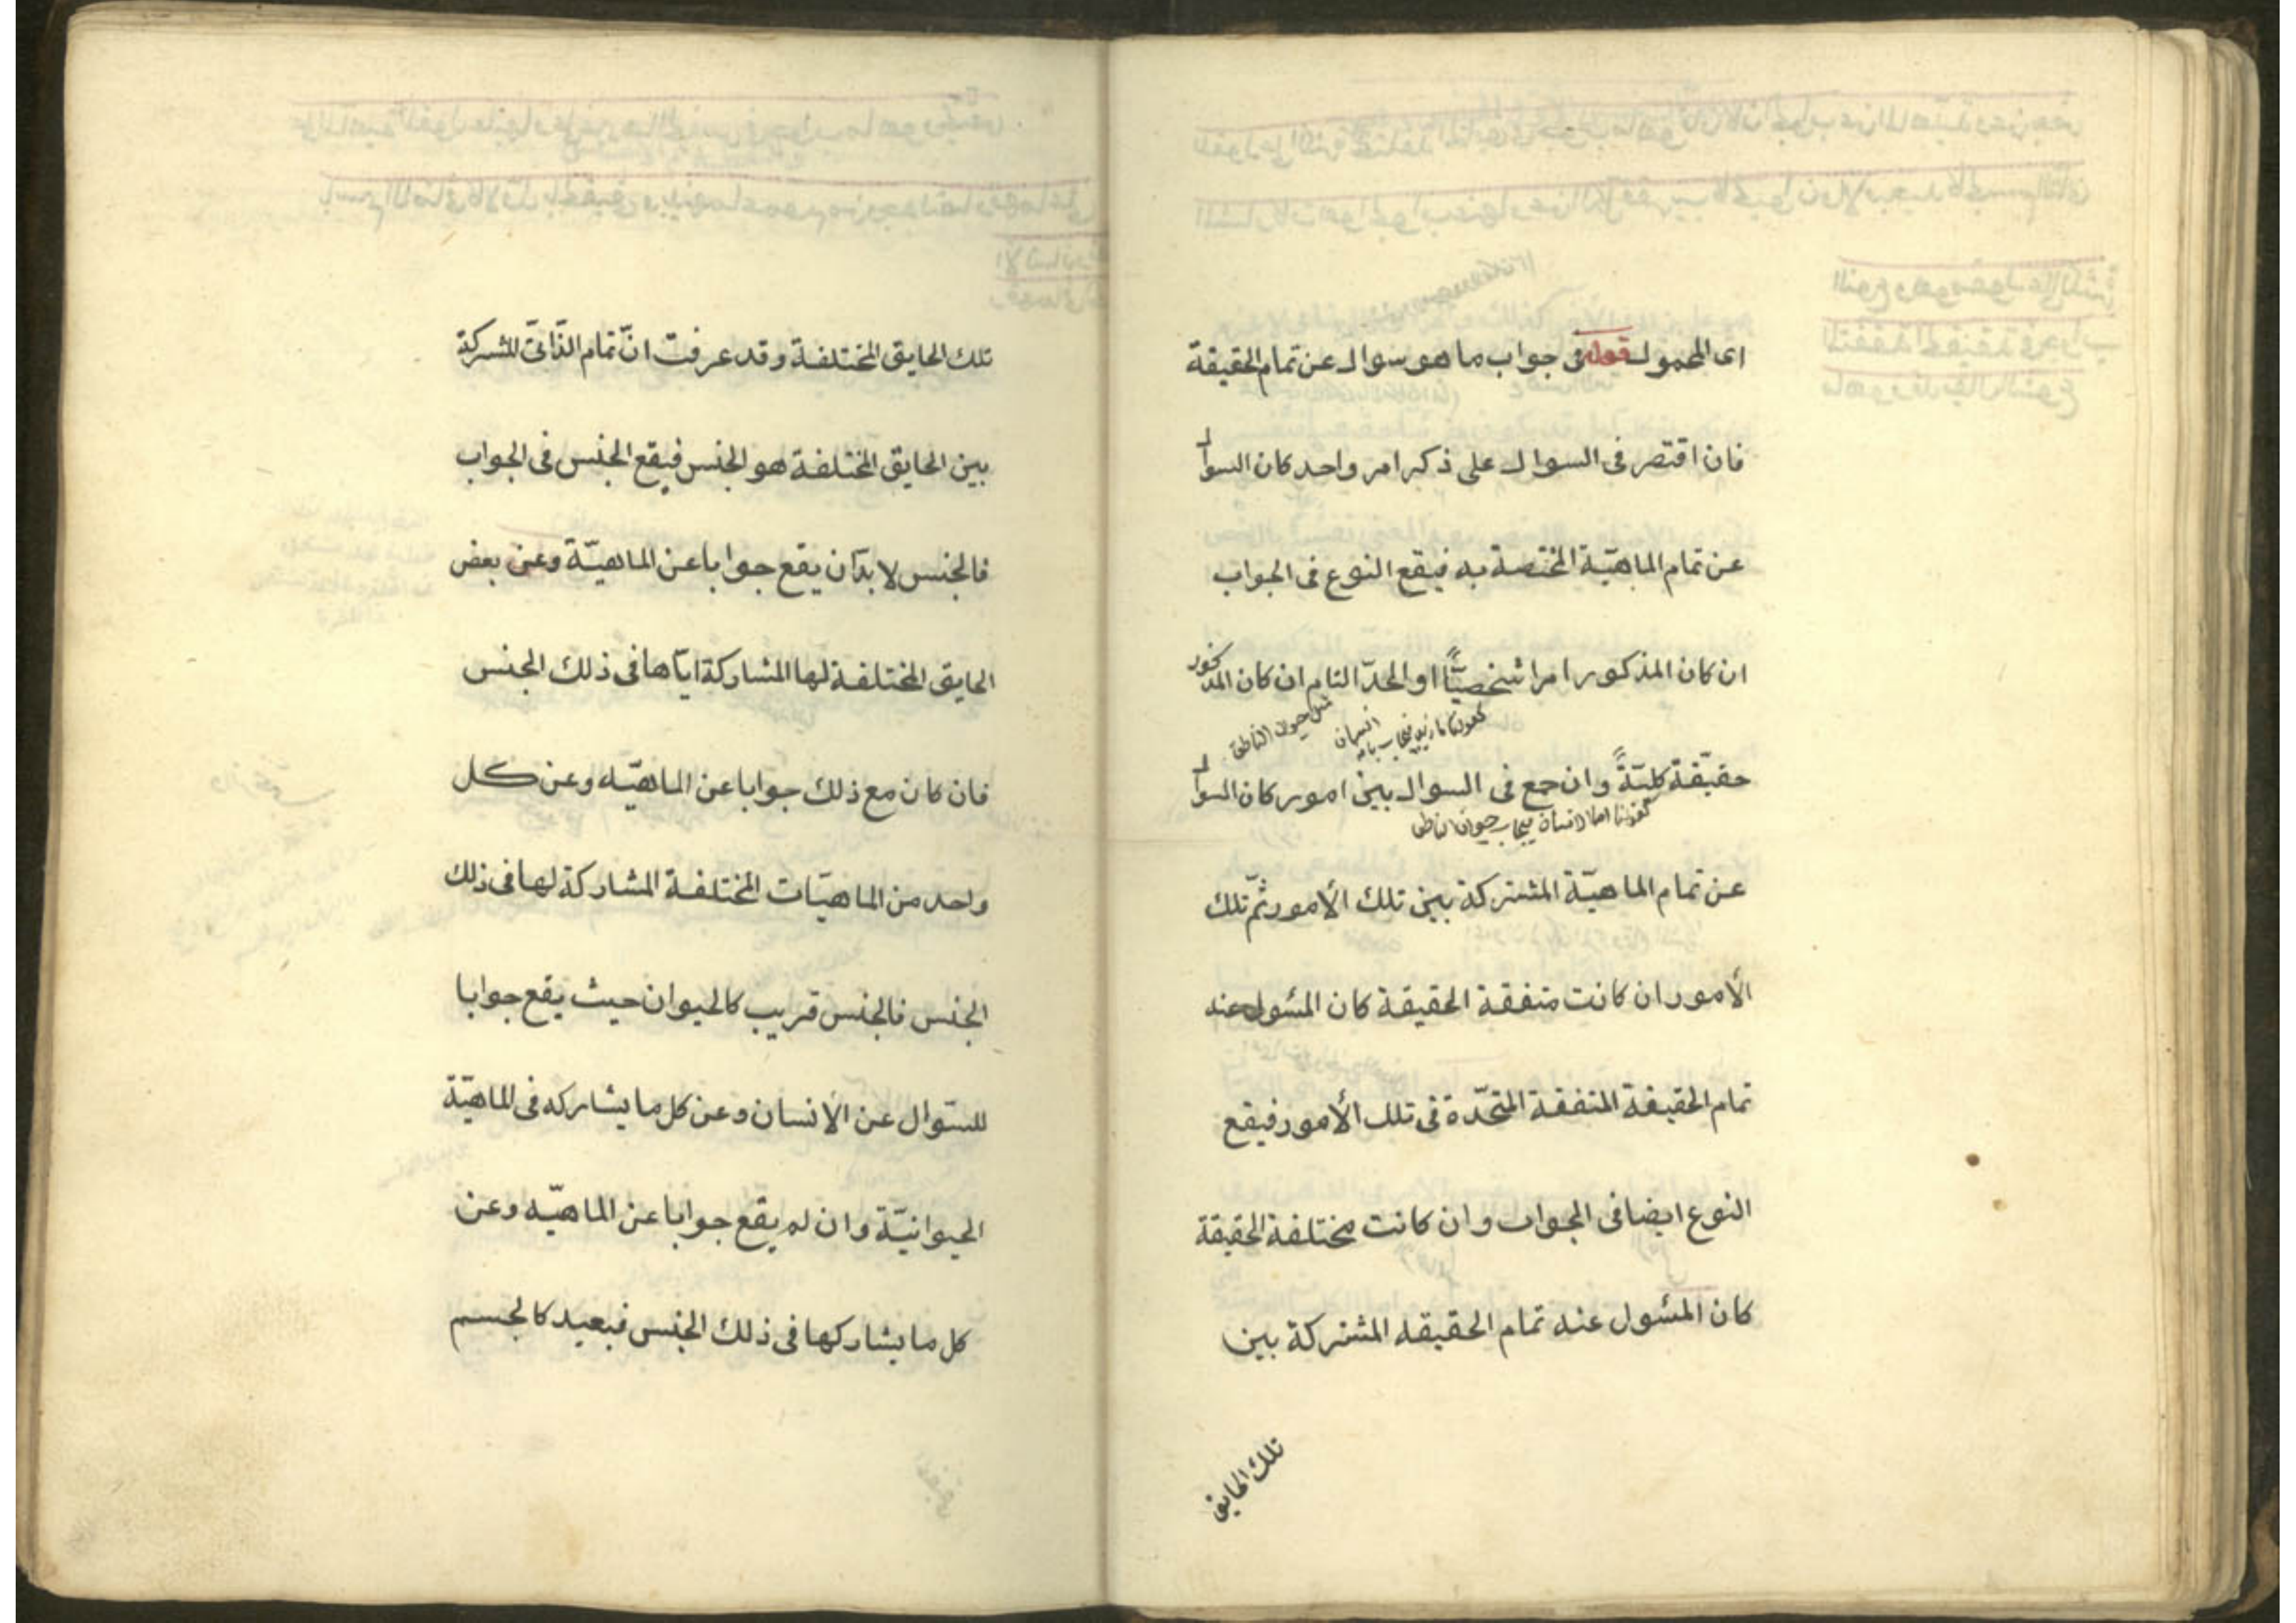 اى المحمول قوله فى جواب ما هو سوال عن تمام الحقيقة
فان اقتصر فى السوال على ذكر امر واحد كان السوال
عن تمام الماهيّة المختصة به فيقع النوع فى الجواب
ان كان المذكور امرا شخصيّاً او الحدّ التام ان كان المذكور
حقيقة كليّةً وان جمع فى السوال بين امور كان السوال
عن تمام الماهيّة المشتركة بين تلك الأمور ثمّ تلك
الأمور ان كانت متفقة الحقيقة كان المسُول عنه
تمام الحقيقة المتفقة المتحّدة فى تلك الأمور فيقع
النوع ايضا فى الجواب وان كانت مختلفة الحقيقة
كان المسُول عنه تمام الحقيقه المشتركة بين
تلك الحايق
تلك الحايق المختلفة وقد عرفت انّ تمام الذّاتىّ المشتركة
بين الحايق المختلفة هو الجنس فيقع الجنس فى الجواب
فالجنس لا بدّ ان يقع جوابا عن الماهيّة وعن بعض
الحايق المختلفة لها المشاركة ايّاها فى ذلك الجنس
فان كان مع ذلك جوابا عن الماهيّه وعن كل
واحد من الماهيّات المختلفة المشاركة لها فى ذلك
الجنس فالجنس قريب كالحيوان حيث يقع جوابا
للسّوال عن الأنسان وعن كل ما يشاركه فى الماهيّة
الحيوانيّة وان لم يقع جوابا عن الماهيّه وعن
كل ما يشاركها فى ذلك الجنس فبعيد كالجسم